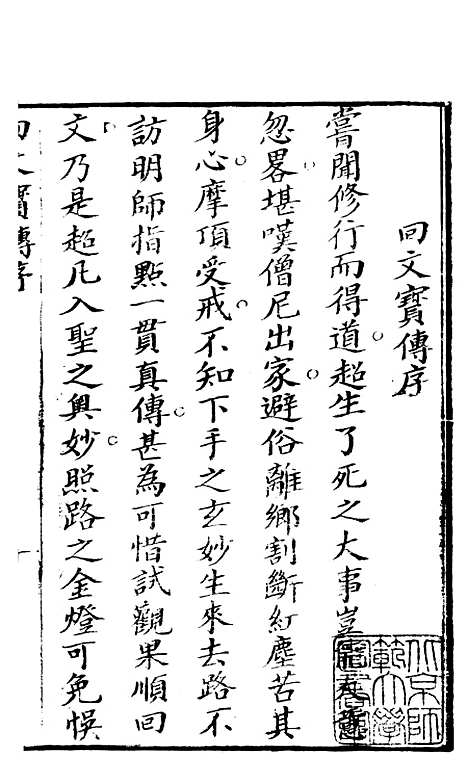 回文寶傳序
嘗聞修行而得道超生了死之大事豈
忽畧堪嘆僧尼出家避俗離鄉割斷紅塵苦其
身心摩頂受戒不知下手之玄妙生來去路不
訪明師指點一貫真傳甚為可惜試觀果順回
文乃是超凡入聖之奧妙照路之金燈可免悞
回文寶傳序
北京師範大學